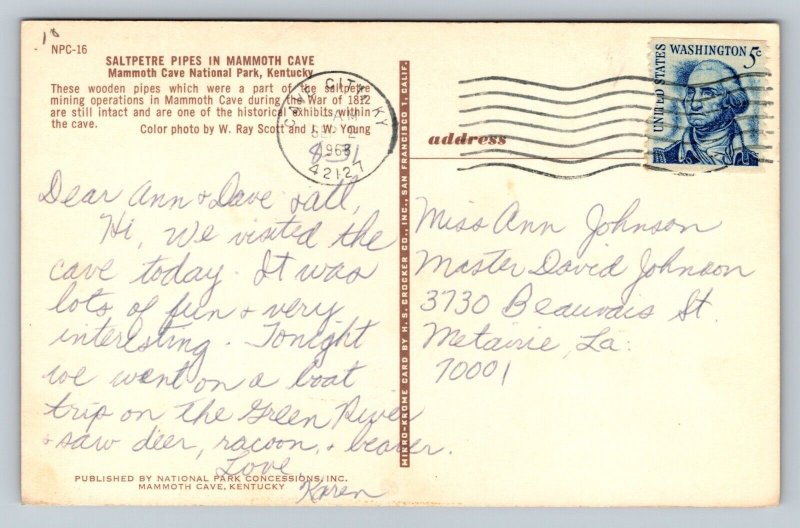 18
NPC-16
SALTPETRE PIPES IN MAMMOTH CAVE
Mammoth Cave National Park, Kentucky
These wooden pipes which were a part of the saltpetre
mining operations in Mammoth Cave during the War of 1812
are still intact and are one of the historical exhibits within
the cave.
Color photo by W. Ray Scott and J. W. Young
Dear Ann & Dave & all,
Hi, We visited the
cave today. It was
lots of fun & very
interesting. Tonight
we went on a boat
trip on the Green River
& saw deer, racoon, & beaver.
Love,
Karen
PUBLISHED BY NATIONAL PARK CONCESSIONS, INC.
MAMMOTH CAVE, KENTUCKY
MIRRO-KROME CARD BY H. S. CROCKER CO., INC., SAN FRANCISCO 1, CALIF.
CAVE CITY, KY
AM
1968
42127
UNITED STATES
WASHINGTON 5c
address
Miss Ann Johnson
Master David Johnson
3730 Beauvais St.
Metairie, La.
70001